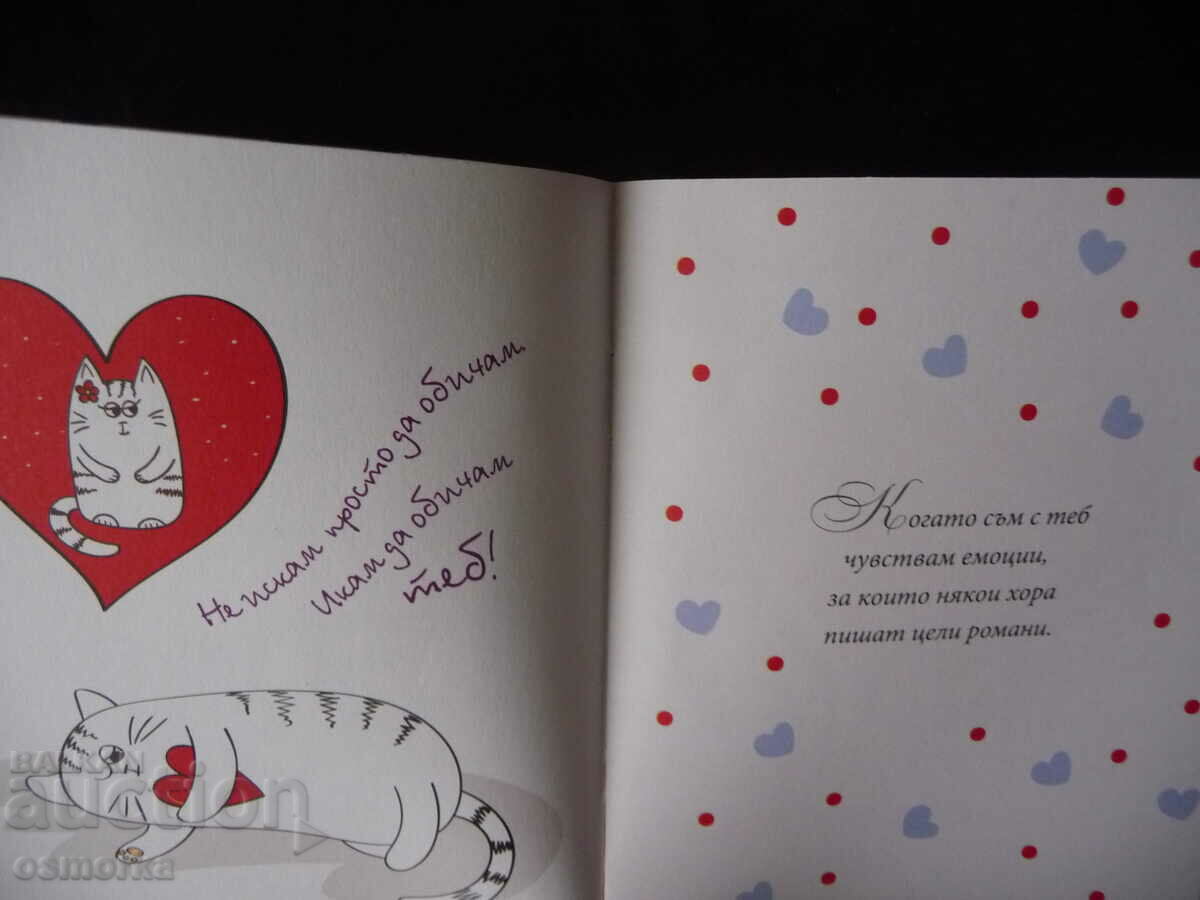 Не искам просто да обичам.
Икам да обичам
теб!
Когато съм с теб
чувствам емоции,
за които някои хора
пишат цели романи.
BALKAN
auction
osmorka